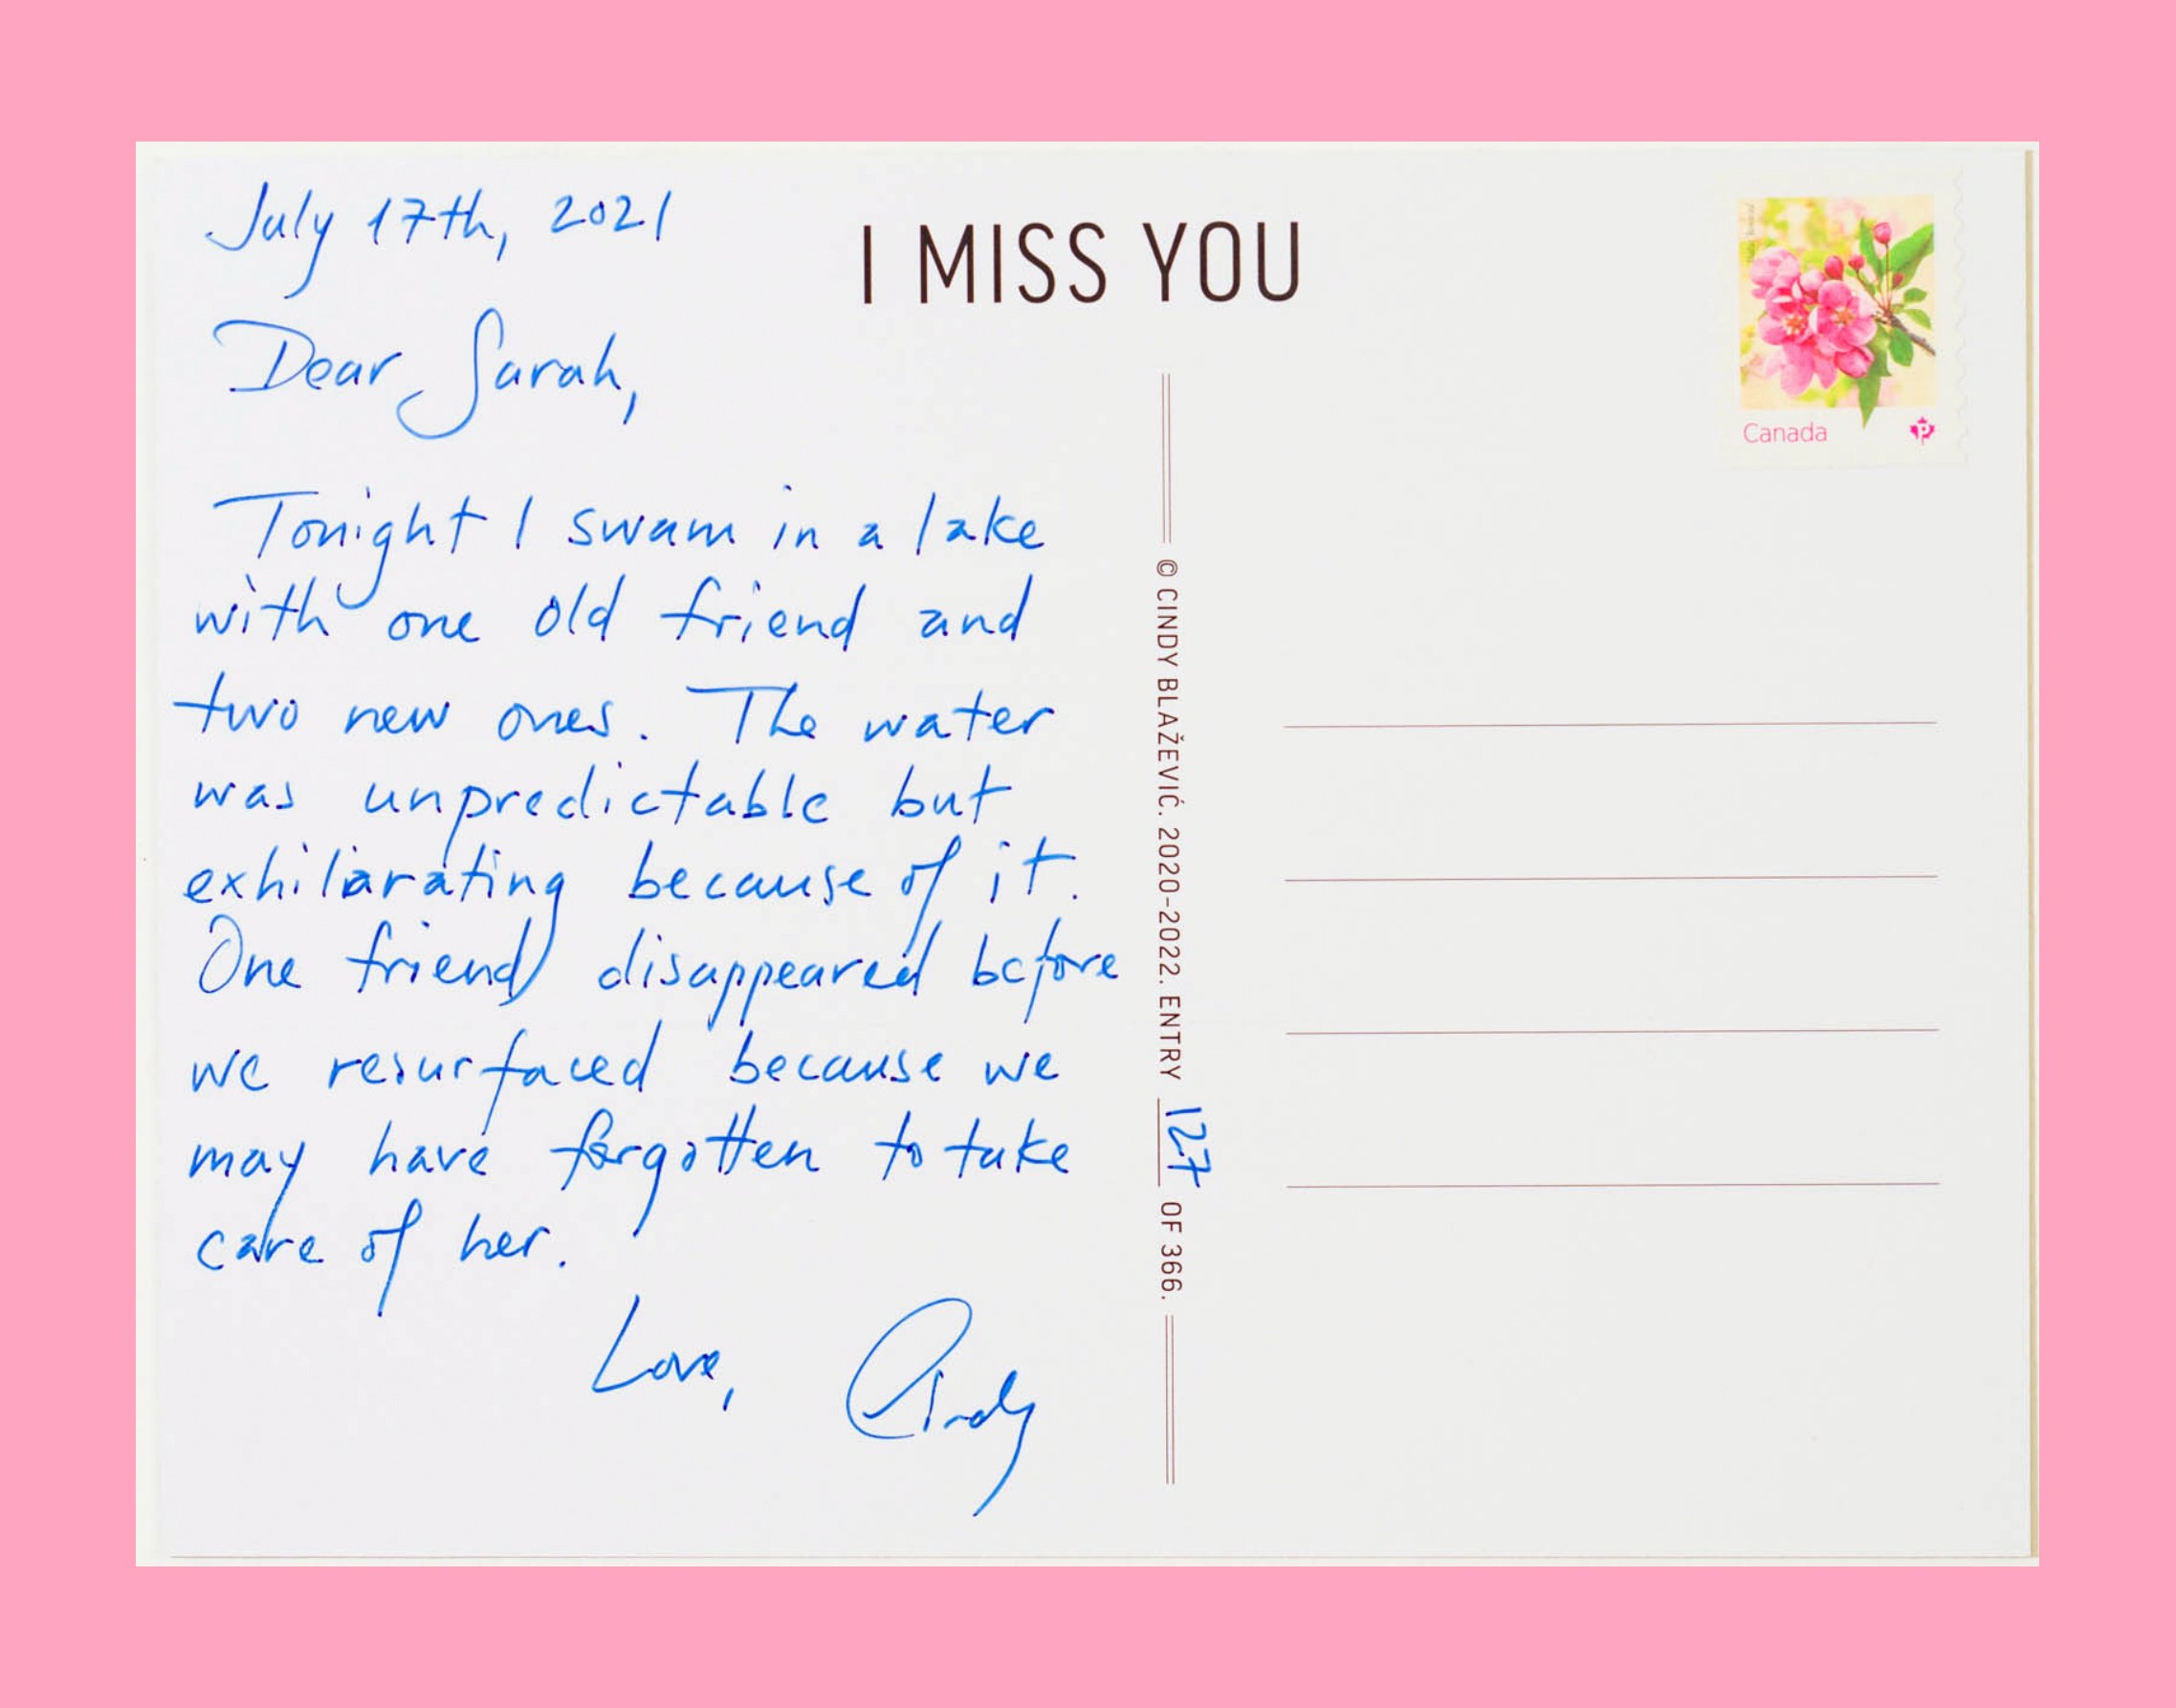 July 17th, 2021
Dear Sarah,
Tonight I swam in a lake
with one old friend and
two new ones. The water
was unpredictable but
exhiliarating because of it.
One friend disappeared before
we resurfaced because we
may have forgotten to take
care of her.
Love, Cindy
I MISS YOU
© CINDY BLAŽEVIĆ. 2020-2022. ENTRY 127 OF 366.
Canada
P